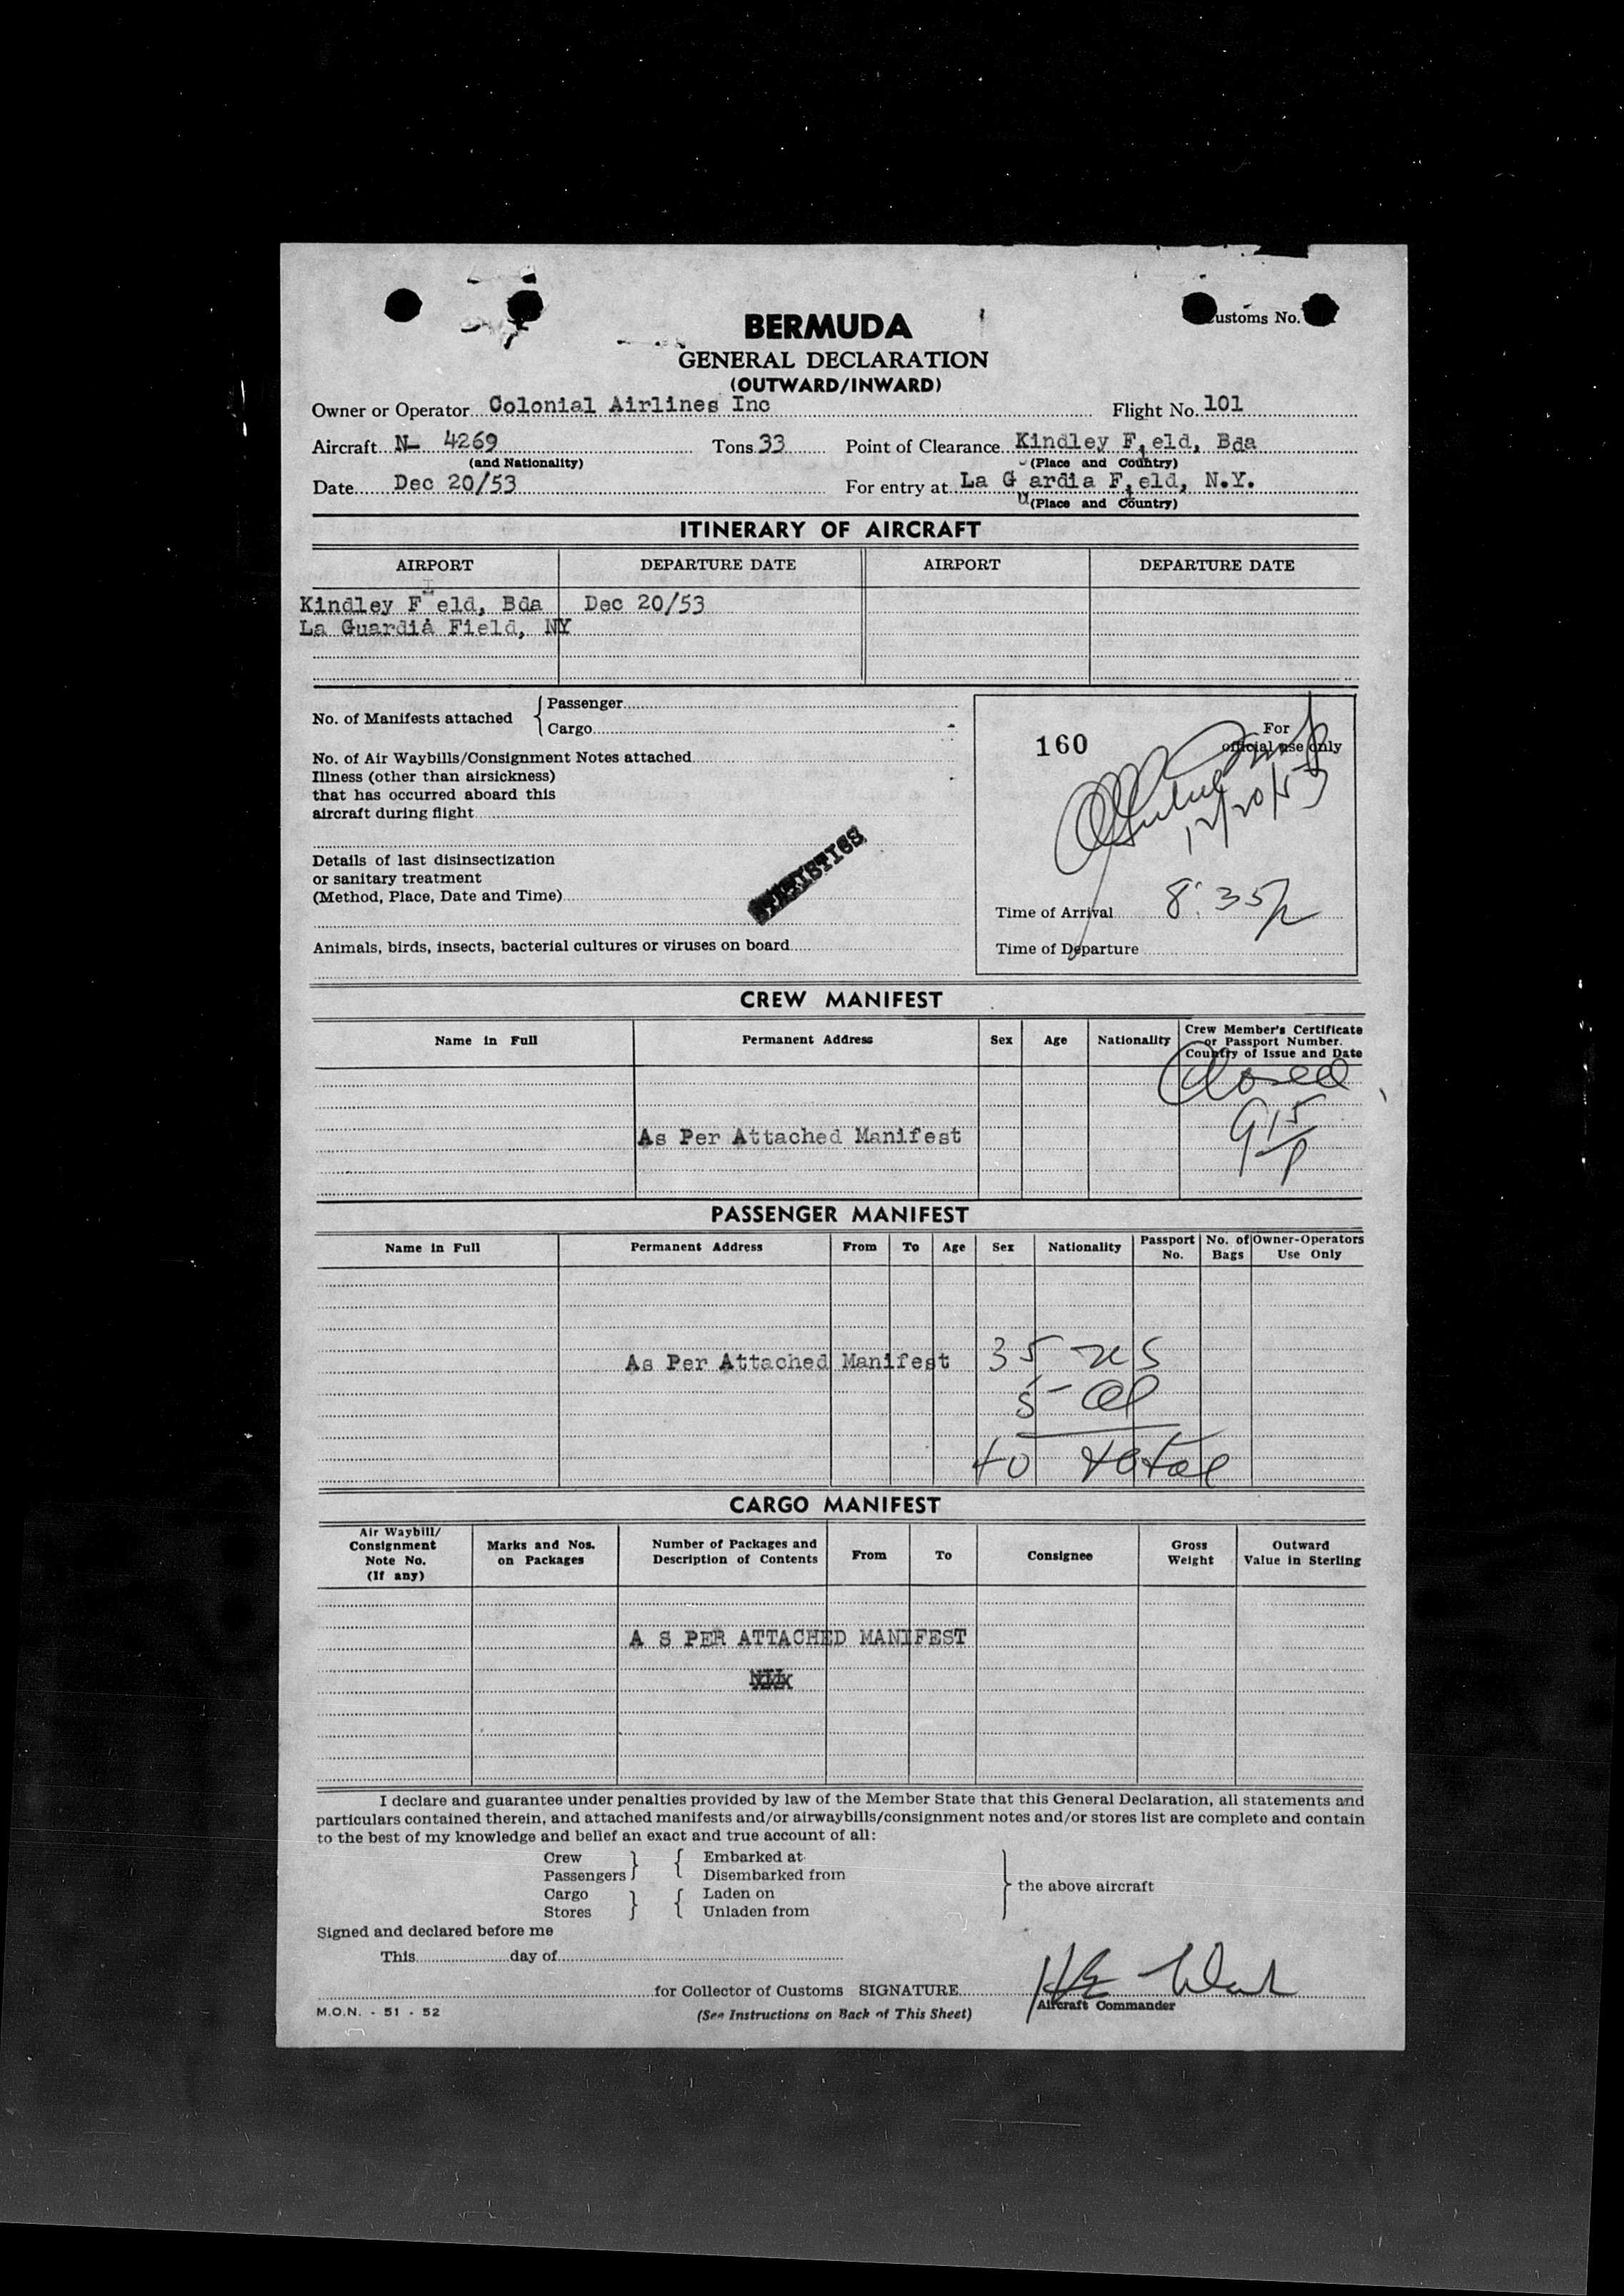 Customs No.
BERMUDA
GENERAL DECLARATION
(OUTWARD/INWARD)
Owner or Operator Colonial Airlines Inc Flight No. 101
Aircraft N- 4269 Tons 33 Point of Clearance Kindley Field, Bda
(and Nationality) (Place and Country)
Date Dec 20/53 For entry at La Guardia Field, N.Y.
(Place and Country)
ITINERARY OF AIRCRAFT
AIRPORT DEPARTURE DATE AIRPORT DEPARTURE DATE
Kindley Field, Bda Dec 20/53
La Guardia Field, NY
No. of Manifests attached { Passenger
Cargo
No. of Air Waybills/Consignment Notes attached
Illness (other than airsickness)
that has occurred aboard this
aircraft during flight
Details of last disinsectization
or sanitary treatment
(Method, Place, Date and Time)
Animals, birds, insects, bacterial cultures or viruses on board
160 For
official use only
12/20/53
Time of Arrival 8:35p
Time of Departure
CREW MANIFEST
Name in Full Permanent Address Sex Age Nationality Crew Member's Certificate
or Passport Number.
Country of Issue and Date
Closed
915
p
As Per Attached Manifest
PASSENGER MANIFEST
Name in Full Permanent Address From To Age Sex Nationality Passport No. No. of Bags Owner-Operators Use Only
As Per Attached Manifest 35 US
5 - Al
40 total
CARGO MANIFEST
Air Waybill/ Consignment Note No. (If any) Marks and Nos. on Packages Number of Packages and Description of Contents From To Consignee Gross Weight Outward Value in Sterling
A S PER ATTACHED MANIFEST
I declare and guarantee under penalties provided by law of the Member State that this General Declaration, all statements and
particulars contained therein, and attached manifests and/or airwaybills/consignment notes and/or stores list are complete and contain
to the best of my knowledge and belief an exact and true account of all:
Crew } { Embarked at
Passengers Disembarked from
Cargo } { Laden on
Stores Unladen from
} the above aircraft
Signed and declared before me
This day of
for Collector of Customs SIGNATURE
Aircraft Commander
M.O.N. - 51 - 52
(See Instructions on Back of This Sheet)